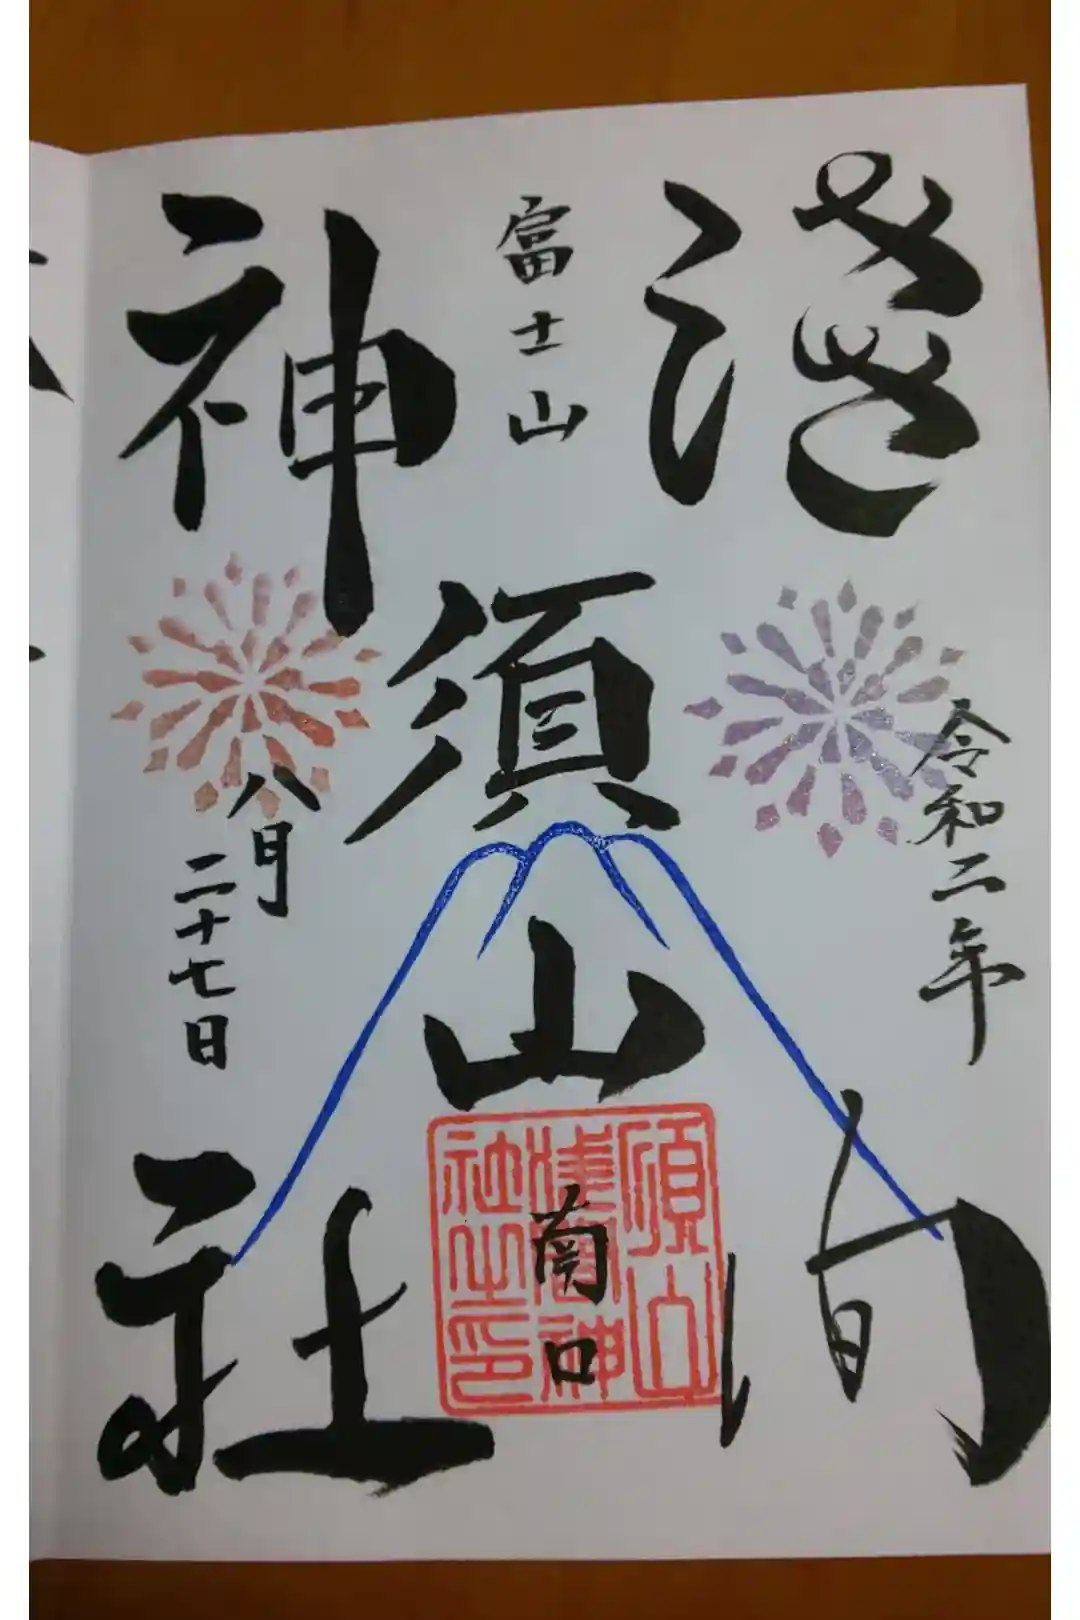 令和二年
淺間
富士山
須山
南口
神社
八月
二十七日
須山
淺間神
社之印